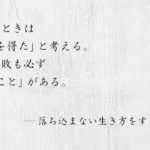 ときは
を得た」と考える。
敗も必ず
こと」がある。
― 落ち込まない生き方をす